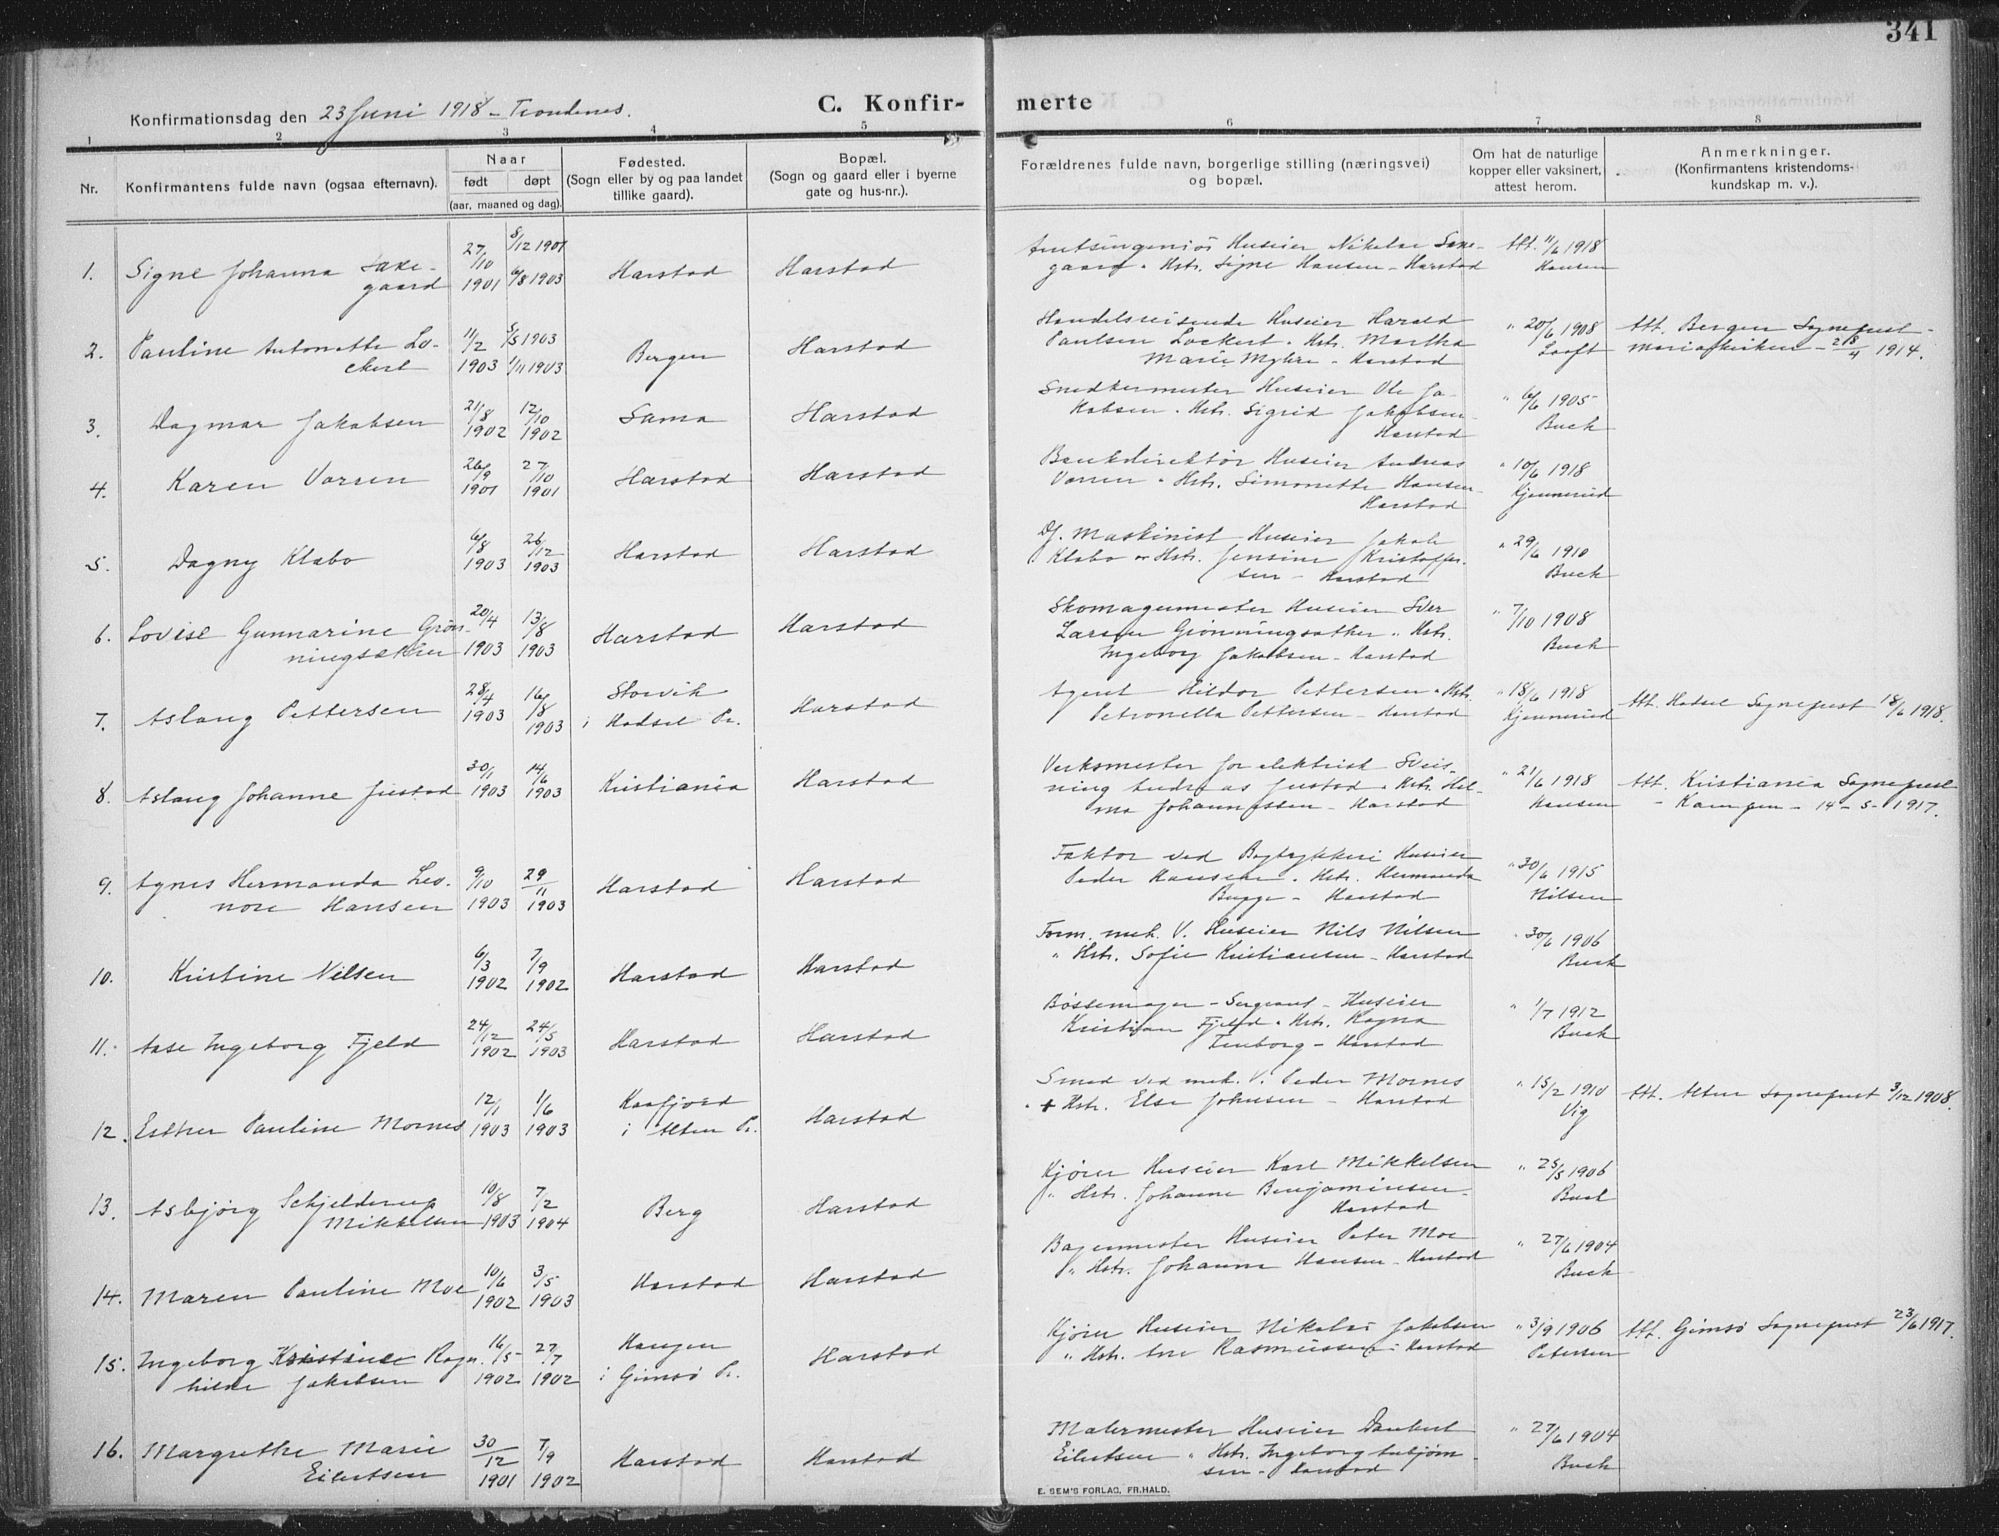 341
Konfirmationsdag den 23 Juni 1918 - Trondenes.
C. Konfir-
merte
1 2 3 4 5 6 7 8
Nr.
Konfirmantens fulde navn (ogsaa efternavn).
Naar
født døpt
(aar, maaned og dag).
Fødested.
(Sogn eller by og paa landet
tillike gaard).
Bopæl.
(Sogn og gaard eller i byerne
gate og hus-nr.).
Forældrenes fulde navn, borgerlige stilling (næringsvei)
og bopæl.
Om hat de naturlige
kopper eller vaksinert,
attest herom.
Anmerkninger.
(Konfirmantens kristendoms-
kundskap m. v.).
1. Signe Johanna Saxe-
gaard
27/10 1901
8/12 1901
6/8 1903
Harstad
Harstad
Amtsingeniør Huseier Nikolai Saxe-
gaard " Hstr. Signe Hansen - Harstad
Att. 11/6 1918
Hansen
2. Pauline Antonette Lo-
ckert
11/2 1903
8/5 1903
1/11 1903
Bergen
Harstad
Handelsreisende Huseier Harald
Paulsen Lockert " Hstr. Martha
Marie Myhre - Harstad
" 20/6 1908
Looft
Att. Bergen Sogneprest -
Mariakirken - 28/4 1914.
3. Dagmar Jakobsen
21/8 1902
12/10 1902
Sama
Harstad
Snedkermester Huseier Ole Ja-
kobsen " Hstr. Sigrid Jakobsen -
Harstad
" 6/6 1905
Buck
4. Karen Vorren
26/9 1901
27/10 1901
Harstad
Harstad
Bankdirektør Huseier Andreas
Vorren " Hstr. Simonette Hansen -
Harstad
" 10/6 1918
Kjennerud
5. Dagny Klabo
6/8 1903
26/12 1903
Harstad
Harstad
Df. Maskinist Huseier Jakob
Klabo " Hstr. Jensine Kristoffer-
sen - Harstad
" 29/6 1910
Buck
6. Lovise Gunnarine Grøn-
ningsæther
20/4 1903
13/8 1903
Harstad
Harstad
Skomagermester Huseier Iver
Larsen Grønningsæther " Hstr.
Ingeborg Jakobsen - Harstad
" 7/10 1908
Buck
7. Aslaug Pettersen
28/4 1903
16/8 1903
Storvik
i Hadsel Pr.
Harstad
Agent Hildor Pettersen " Hstr.
Petronella Pettersen - Harstad
" 18/6 1918
Kjennerud
Att. Hadsel Sogneprest 18/6 1918.
8. Aslaug Johanne Justad
30/1 1903
14/6 1903
Kristiania
Harstad
Verksmester for elektrisk Sveis-
ning Andreas Justad " Hstr. Hel-
ma Johannessen - Harstad
" 21/6 1918
Hansen
Att. Kristiania Sogneprest
- Kampen - 14-5-1917.
9. Agnes Hermanda Leo-
nore Hansen
9/10 1903
29/11 1903
Harstad
Harstad
Faktor ved Bogtrykkeri Huseier
Peder Hansen " Hstr. Hermanda
Bugge - Harstad
" 30/6 1915
Nilsen
10. Kristine Nilsen
6/3 1902
7/9 1902
Harstad
Harstad
Form. mek. V. Huseier Nils Nilsen
" Hstr. Sofie Kristiansen - Harstad
" 30/6 1906
Buck
11. Aase Ingeborg Fjeld
24/12 1902
24/5 1903
Harstad
Harstad
Bøssemager - Sergeant - Huseier
Kristian Fjeld " Hstr. Ragna
Tenborg - Harstad
" 1/7 1912
Buck
12. Esther Pauline Mornes
12/1 1903
1/6 1903
Kaafjord
i Alten Pr.
Harstad
Smed ved mek. V. Peder Mornes
+ Hstr. Else Johnsen - Harstad
" 15/2 1910
Vig
Att. Alten Sogneprest 3/12 1908.
13. Asbjørg Schjelderup
Mikkelsen
10/8 1903
7/2 1904
Berg
Harstad
Kjører Huseier Karl Mikkelsen
" Hstr. Johanne Benjaminsen -
Harstad
" 25/5 1906
Buck
14. Maren Pauline Moe
10/6 1902
3/5 1903
Harstad
Harstad
Bagermester Huseier Peter Moe
" Hstr. Johanna Hansen - Harstad
" 27/6 1904
Buck
15. Ingeborg Kristine Ragn-
hilda Jakobsen
16/5 1902
27/7 1902
Haugen
i Gimsø Pr.
Harstad
Kjører Huseier Nikolai Jakobsen
" Hstr. Ane Rasmussen - Harstad
" 3/9 1906
Petersen
Att. Gimsø Sogneprest 23/6 1917.
16. Margrethe Marie
Eilertsen
30/12 1901
7/9 1902
Harstad
Harstad
Malermester Huseier Daubert
Eilertsen " Hstr. Ingeborg Asbjørn-
sen - Harstad
" 27/6 1904
Buck
E. SEM'S FORLAG, FR.HALD.